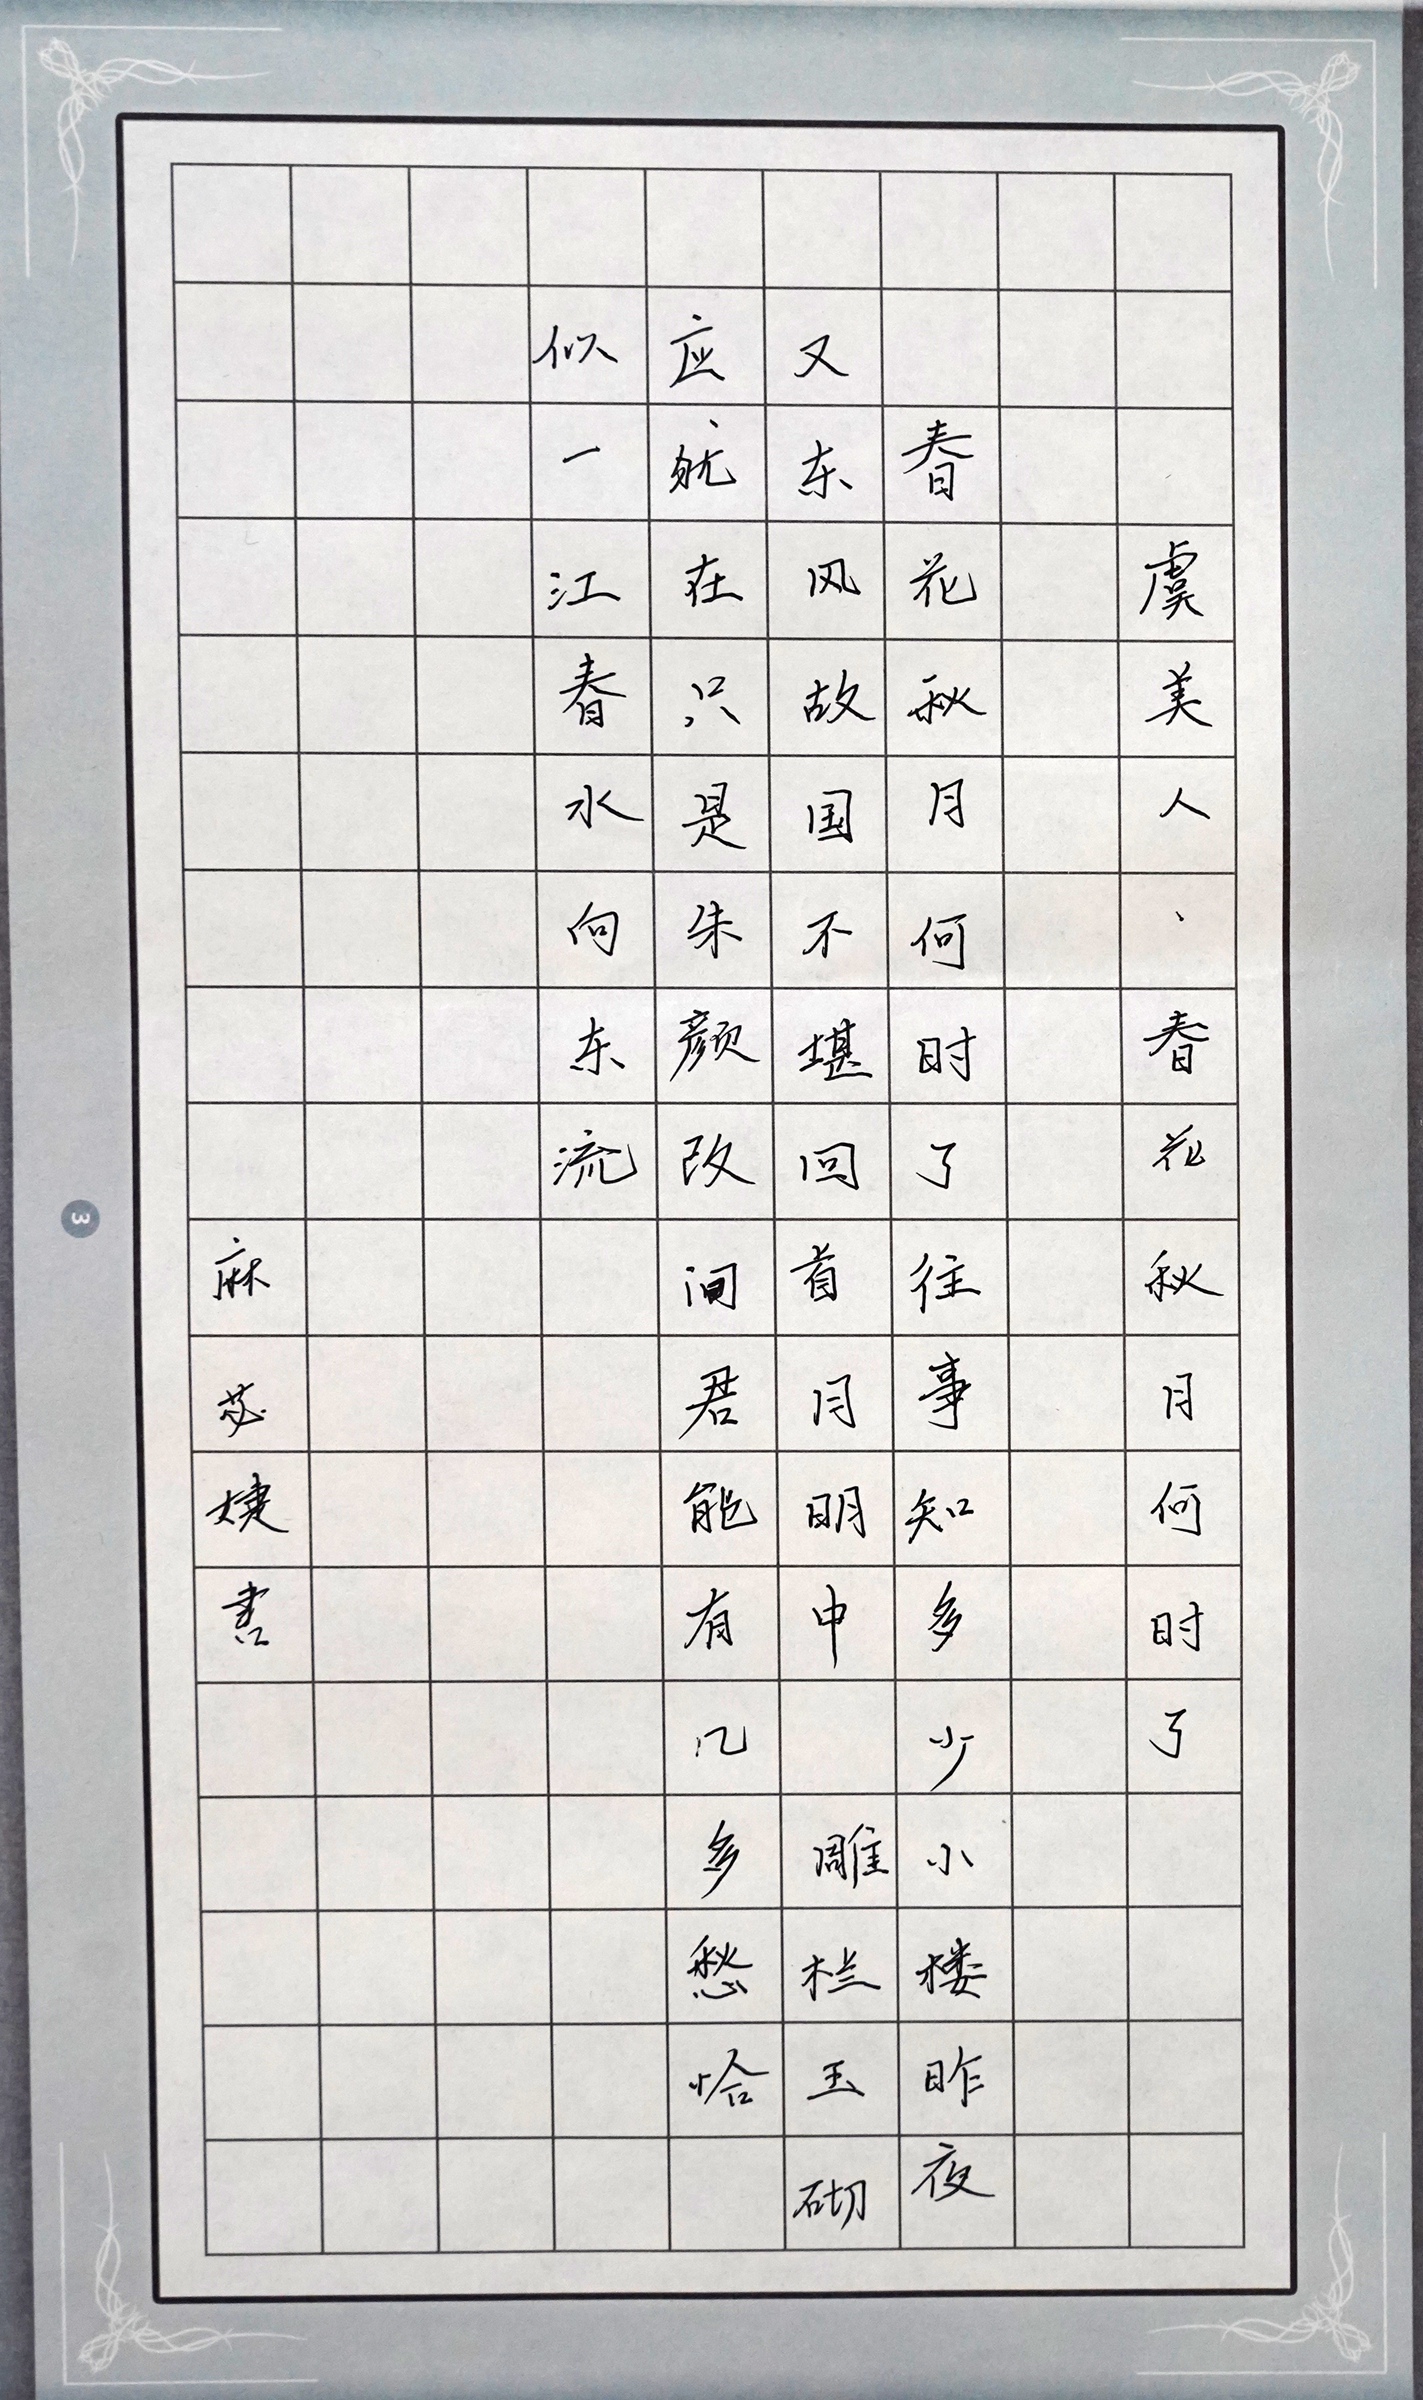 虞美人、春花秋月何时了
春花秋月何时了往事知多少小楼昨夜
又东风故国不堪回首月明中雕栏玉砌
应犹在只是朱颜改问君能有几多愁恰
似一江春水向东流
麻苾婕书
3